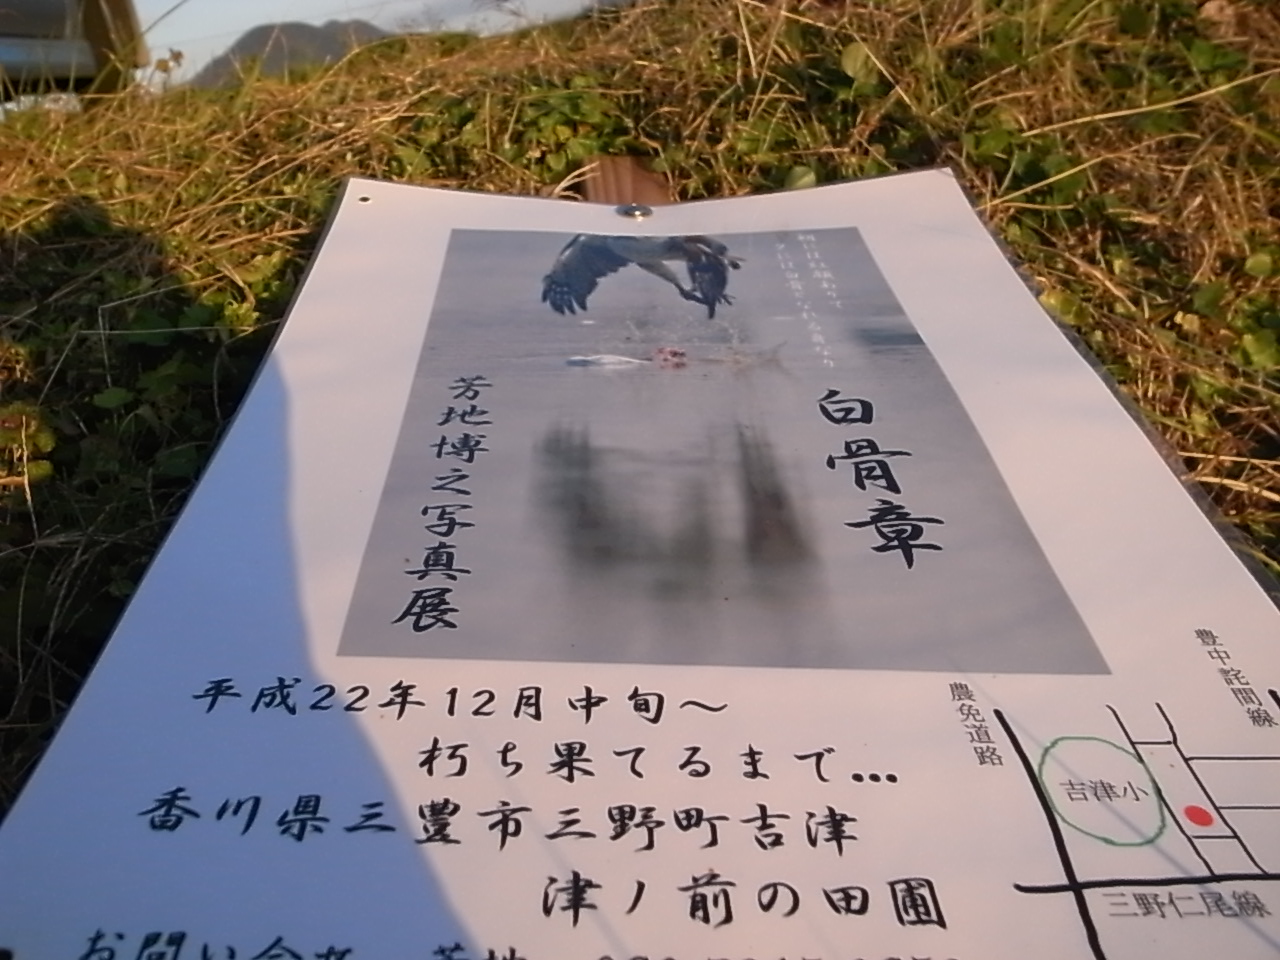 朝には紅顔ありて
夕には白骨となれる身なり
白骨章
芳地博之写真展
平成22年12月中旬～
朽ち果てるまで...
香川県三豊市三野町吉津
津ノ前の田圃
お問い合せ 芳地
農免道路
豊中詫間線
吉津小
三野仁尾線